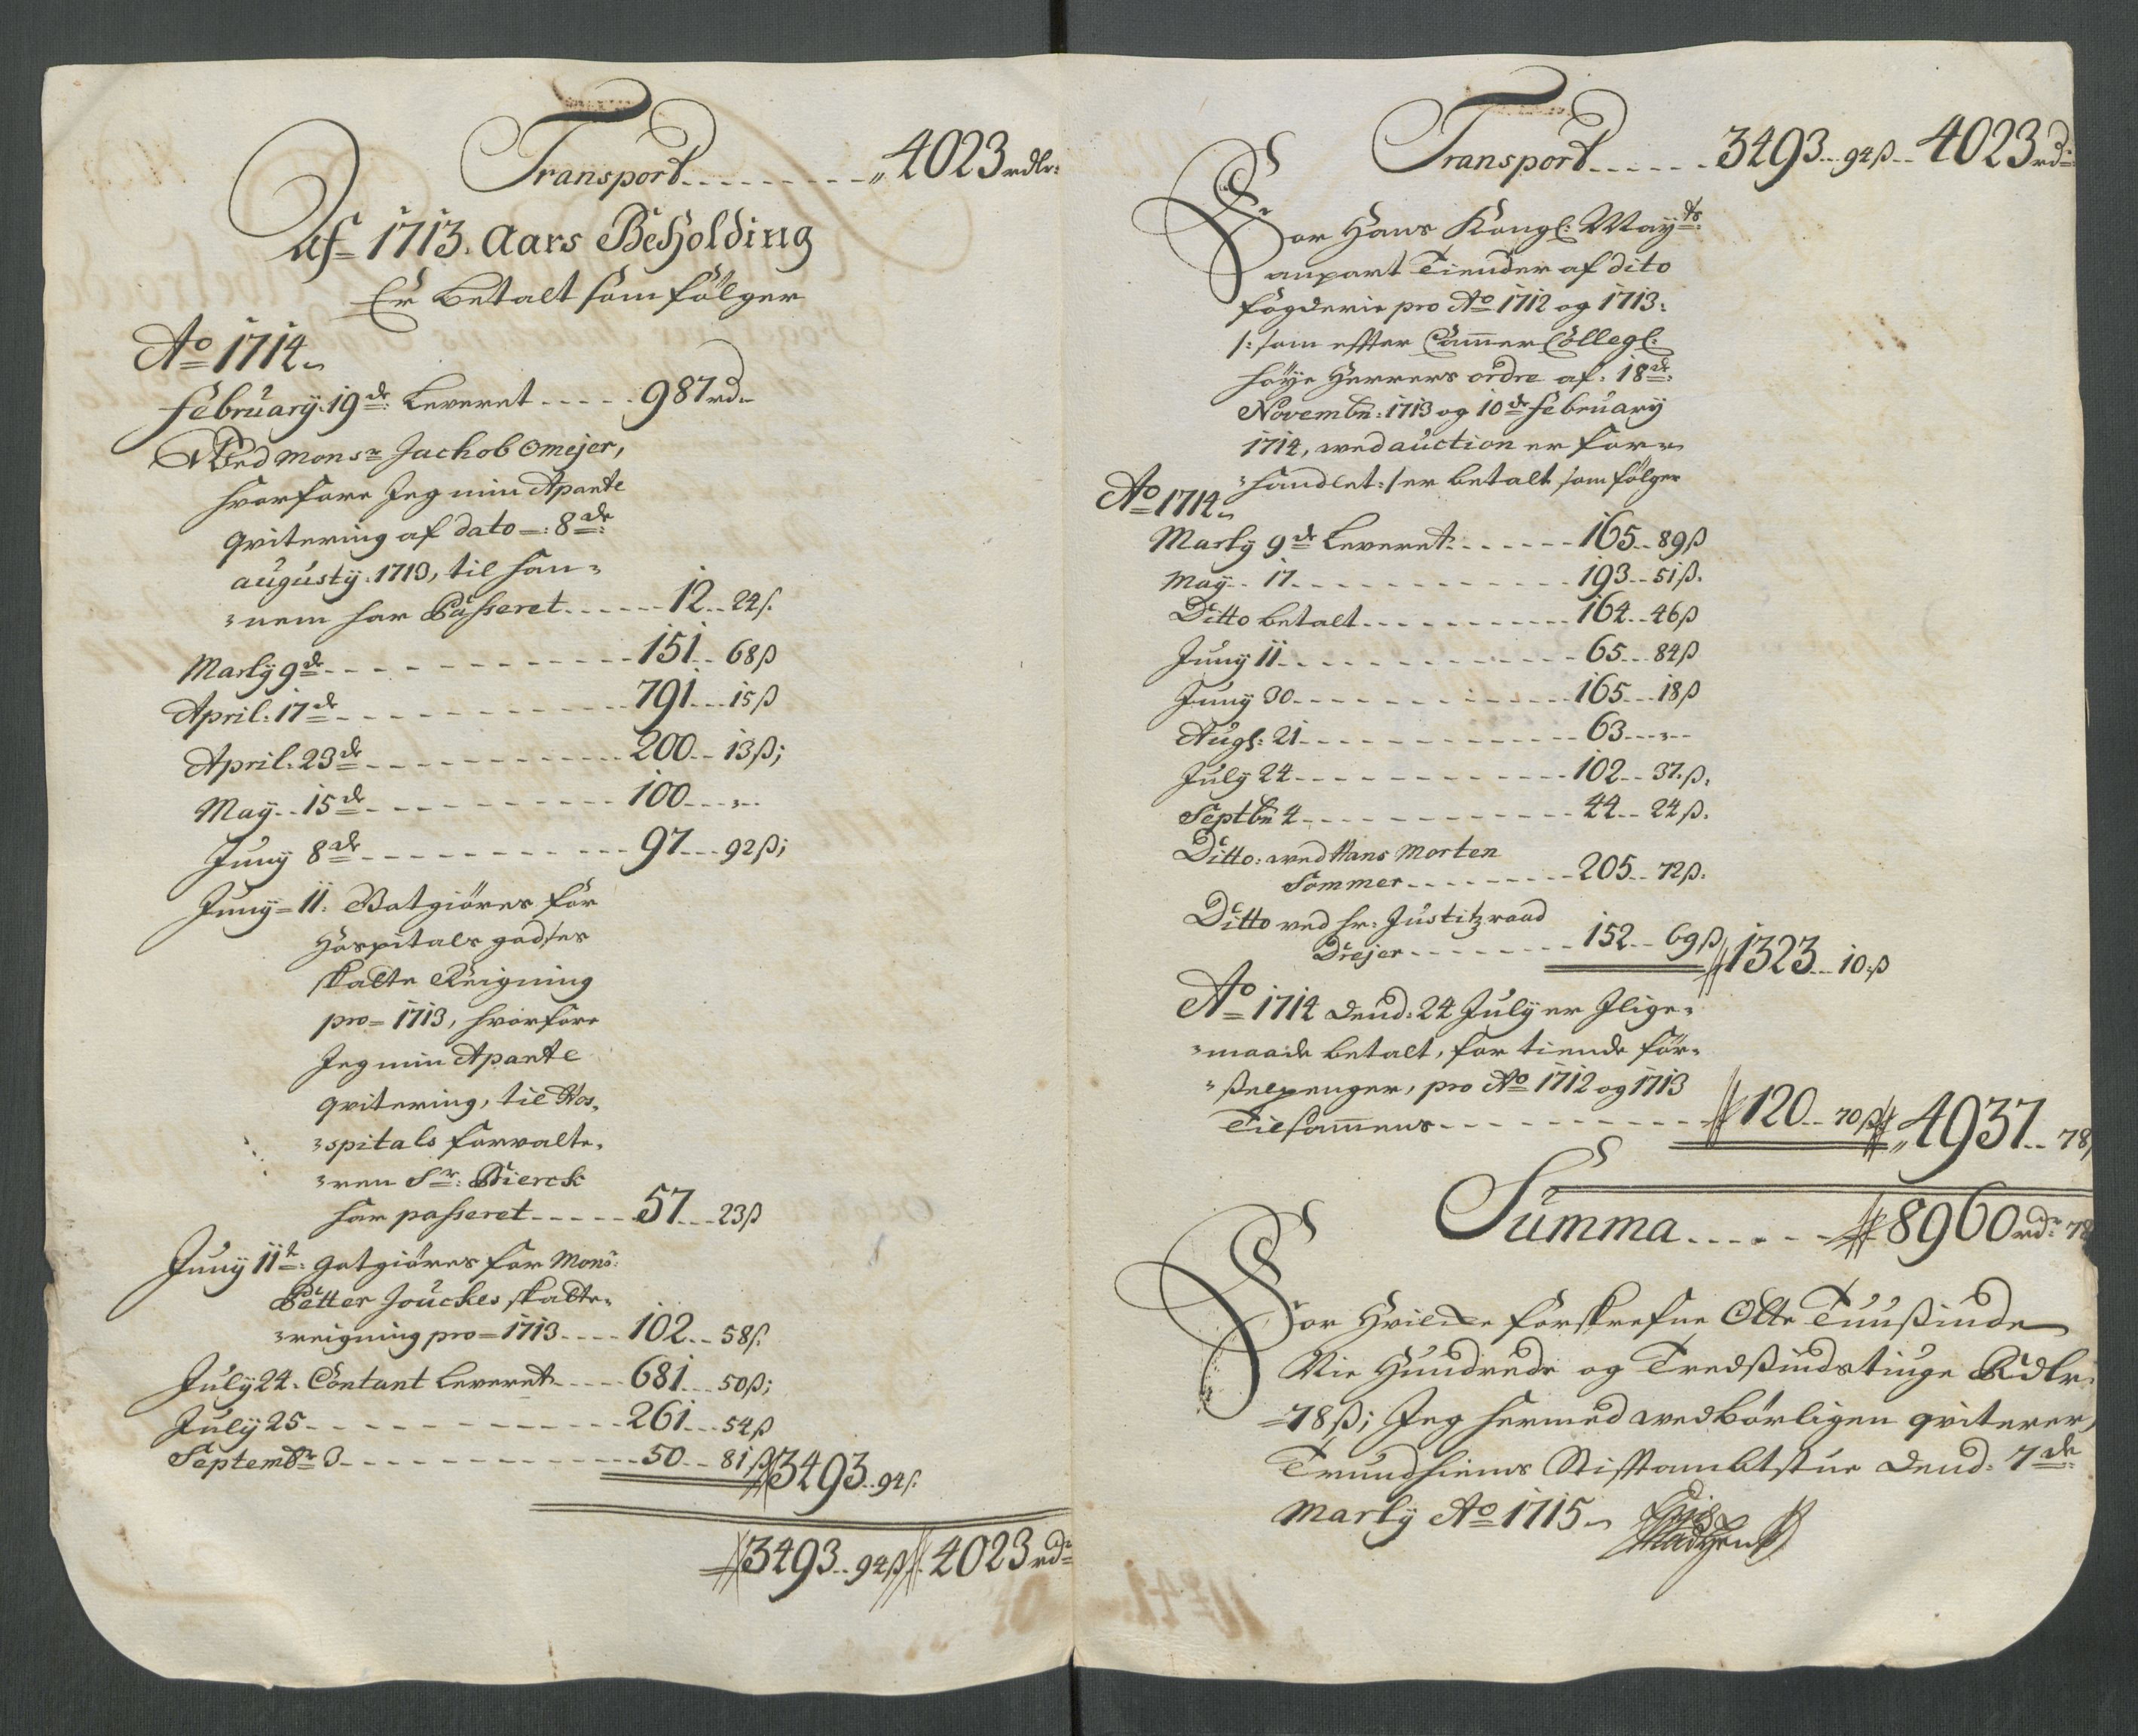 Transport - - - - - - - - - „ 4023 rdlr:
Af 1713. Aars Beholding
Er betalt som fölger
Ao 1714
February: 19de: Leveret - - - - - 987 rd
Ved Monsr Jachob Omejer,
hvorfore Jeg min Aparte
qvitering af dato =: 8de:
augusty: 1713, til han=
=nem har Passeret - - - - - - 12 - 24 ß.
Marty 9de - - - - - - - - - - - - - 151 - 68 ß
April: 17de - - - - - - - - - - - - 791 - 15 ß
April: 23de - - - - - - - - - - - 200 - 13 ß;
May - 15de - - - - - - - - - - 100 - - „ -
Juny 8de - - - - - - - - - - - - 97 - 92 ß;
Juny = 11: Gotgiöres for
Hospitals godses
skatte Reigning
pro = 1713, hvorfore
Jeg min Aparte
qvitering, til Hos=
=spitals forvalte=
=ren Sr: Bierck
har passeret - - - - - - 57 - 23 ß
Juny 11te: gotgiöres for Mons:
Petter Jouckes skatte=
=reigning pro = 1713 - - - - 102 - 58 ß.
July 24. Contant Leveret - - - - 681 - 50 ß;
July 25 - - - - - - - - - - - - - 261 - 54 ß
Septembr 3 - - - - - - - - - - - - - 50 - 81 ß 3493 - 94 ß.
3493 - 94 ß 4023 rdr
Transport - - - - - - 3493 - 94 ß - 4023 rdr:
For Hans Kongl: Mayts:
anpart Tiender af dito
fögderie pro Ao 1712 og 1713:
/: som efter Cammer Collegl:
höye Herrers ordre af: 18de:
Novembr: 1713 og 10de february
1714, ved auction er for=
=handlet :/ er betalt som fölger
Ao 1714
Marty 9de Leveret - - - - - - - 165 - 89 ß
May - 17 - - - - - - - - - - - - - 193 - 51 ß.
Ditto betalt - - - - - - - - - - - 164 - 46 ß
Juny 11 - - - - - - - - - - - - - - 65 - 84 ß
Juny 30 - - - - - - - - - - - - - 165 - 18 ß
Augl: 21 - - - - - - - - - - - - - 63 - - „ -
July 24 - - - - - - - - - - - - - 102 - 37 ß.
Septbr 4 - - - - - - - - - - - - - 44 - 24 ß.
Ditto: ved Hans Morten
Sommer - - - - - - - - - 205 - 72 ß.
Ditto ved hr: Justitzraad
Drejer - - - - - - - - - 152 - 69 ß 1323 - 10 ß
Ao 1714 dend: 24 July er Jlige=
=maade betalt, for tiende för=
=selpenger, pro Ao 1712 og 1713
Tilsammens - - - - - - - - - - - 120 - 70 ß „ 4937 - 78
Summa - - - - - - 8960 rdr 78
For Hvilcke forskrefne Otte Tuußinde
Nie Hundrede og Tredßindstiuge Rdlr.
=78 ß; Jeg hermed vedbörligen qviterer,
Trundhiems Stiftambtstue dend: 7de
Marty Ao 1715